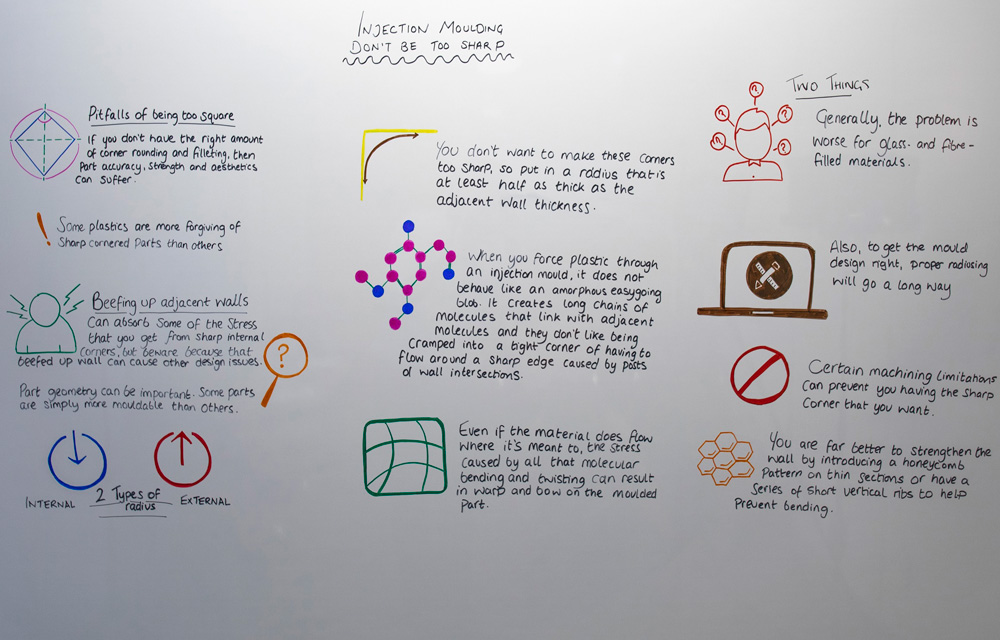 INJECTION MOULDING
DON'T BE TOO SHARP
Pitfalls of being too square
If you don't have the right amount
of corner rounding and filleting, then
Part accuracy, strength and aesthetics
can suffer.
!
Some plastics are more forgiving of
Sharp cornered Parts than others
Beefing up adjacent walls
Can absorb Some of the Stress
that you get from sharp internal
corners, but beware because that
beefed up wall can cause other design issues.
?
Part geometry can be important. Some parts
are simply more mouldable than others.
INTERNAL
2 Types of
radius
EXTERNAL
You don't want to make these corners
too sharp, so put in a radius that is
at least half as thick as the
adjacent wall thickness.
When you force plastic through
an injection mould, it does not
behave like an amorphous easygoing
blob. It creates long chains of
molecules that link with adjacent
molecules and they don't like being
cramped into a tight corner of having to
flow around a sharp edge caused by posts
of wall intersections.
Even if the material does flow
where it's meant to, the stress
caused by all that molecular
bending and twisting can result
in warp and bow on the moulded
part.
TWO THINGS
? ? ? ? ?
Generally, the problem is
worse for glass- and fibre-
filled materials.
Also, to get the mould
design right, proper radiusing
will go a long way
Certain machining limitations
can prevent you having the sharp
corner that you want.
You are far better to strengthen the
wall by introducing a honeycomb
Pattern on thin sections or have a
series of short vertical ribs to help
Prevent bending.